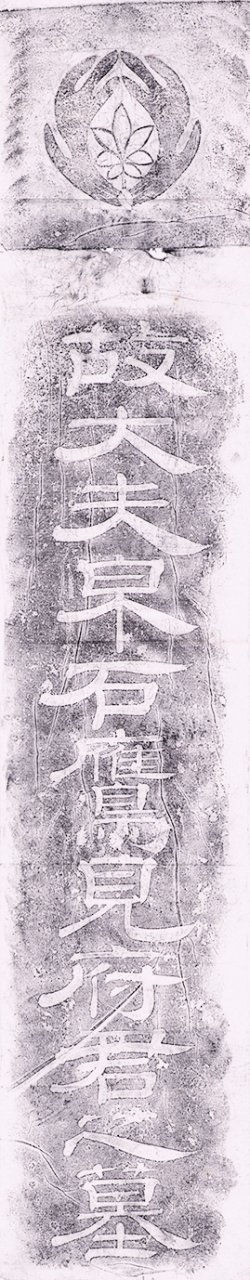 故大夫泉石鷹見府君之墓